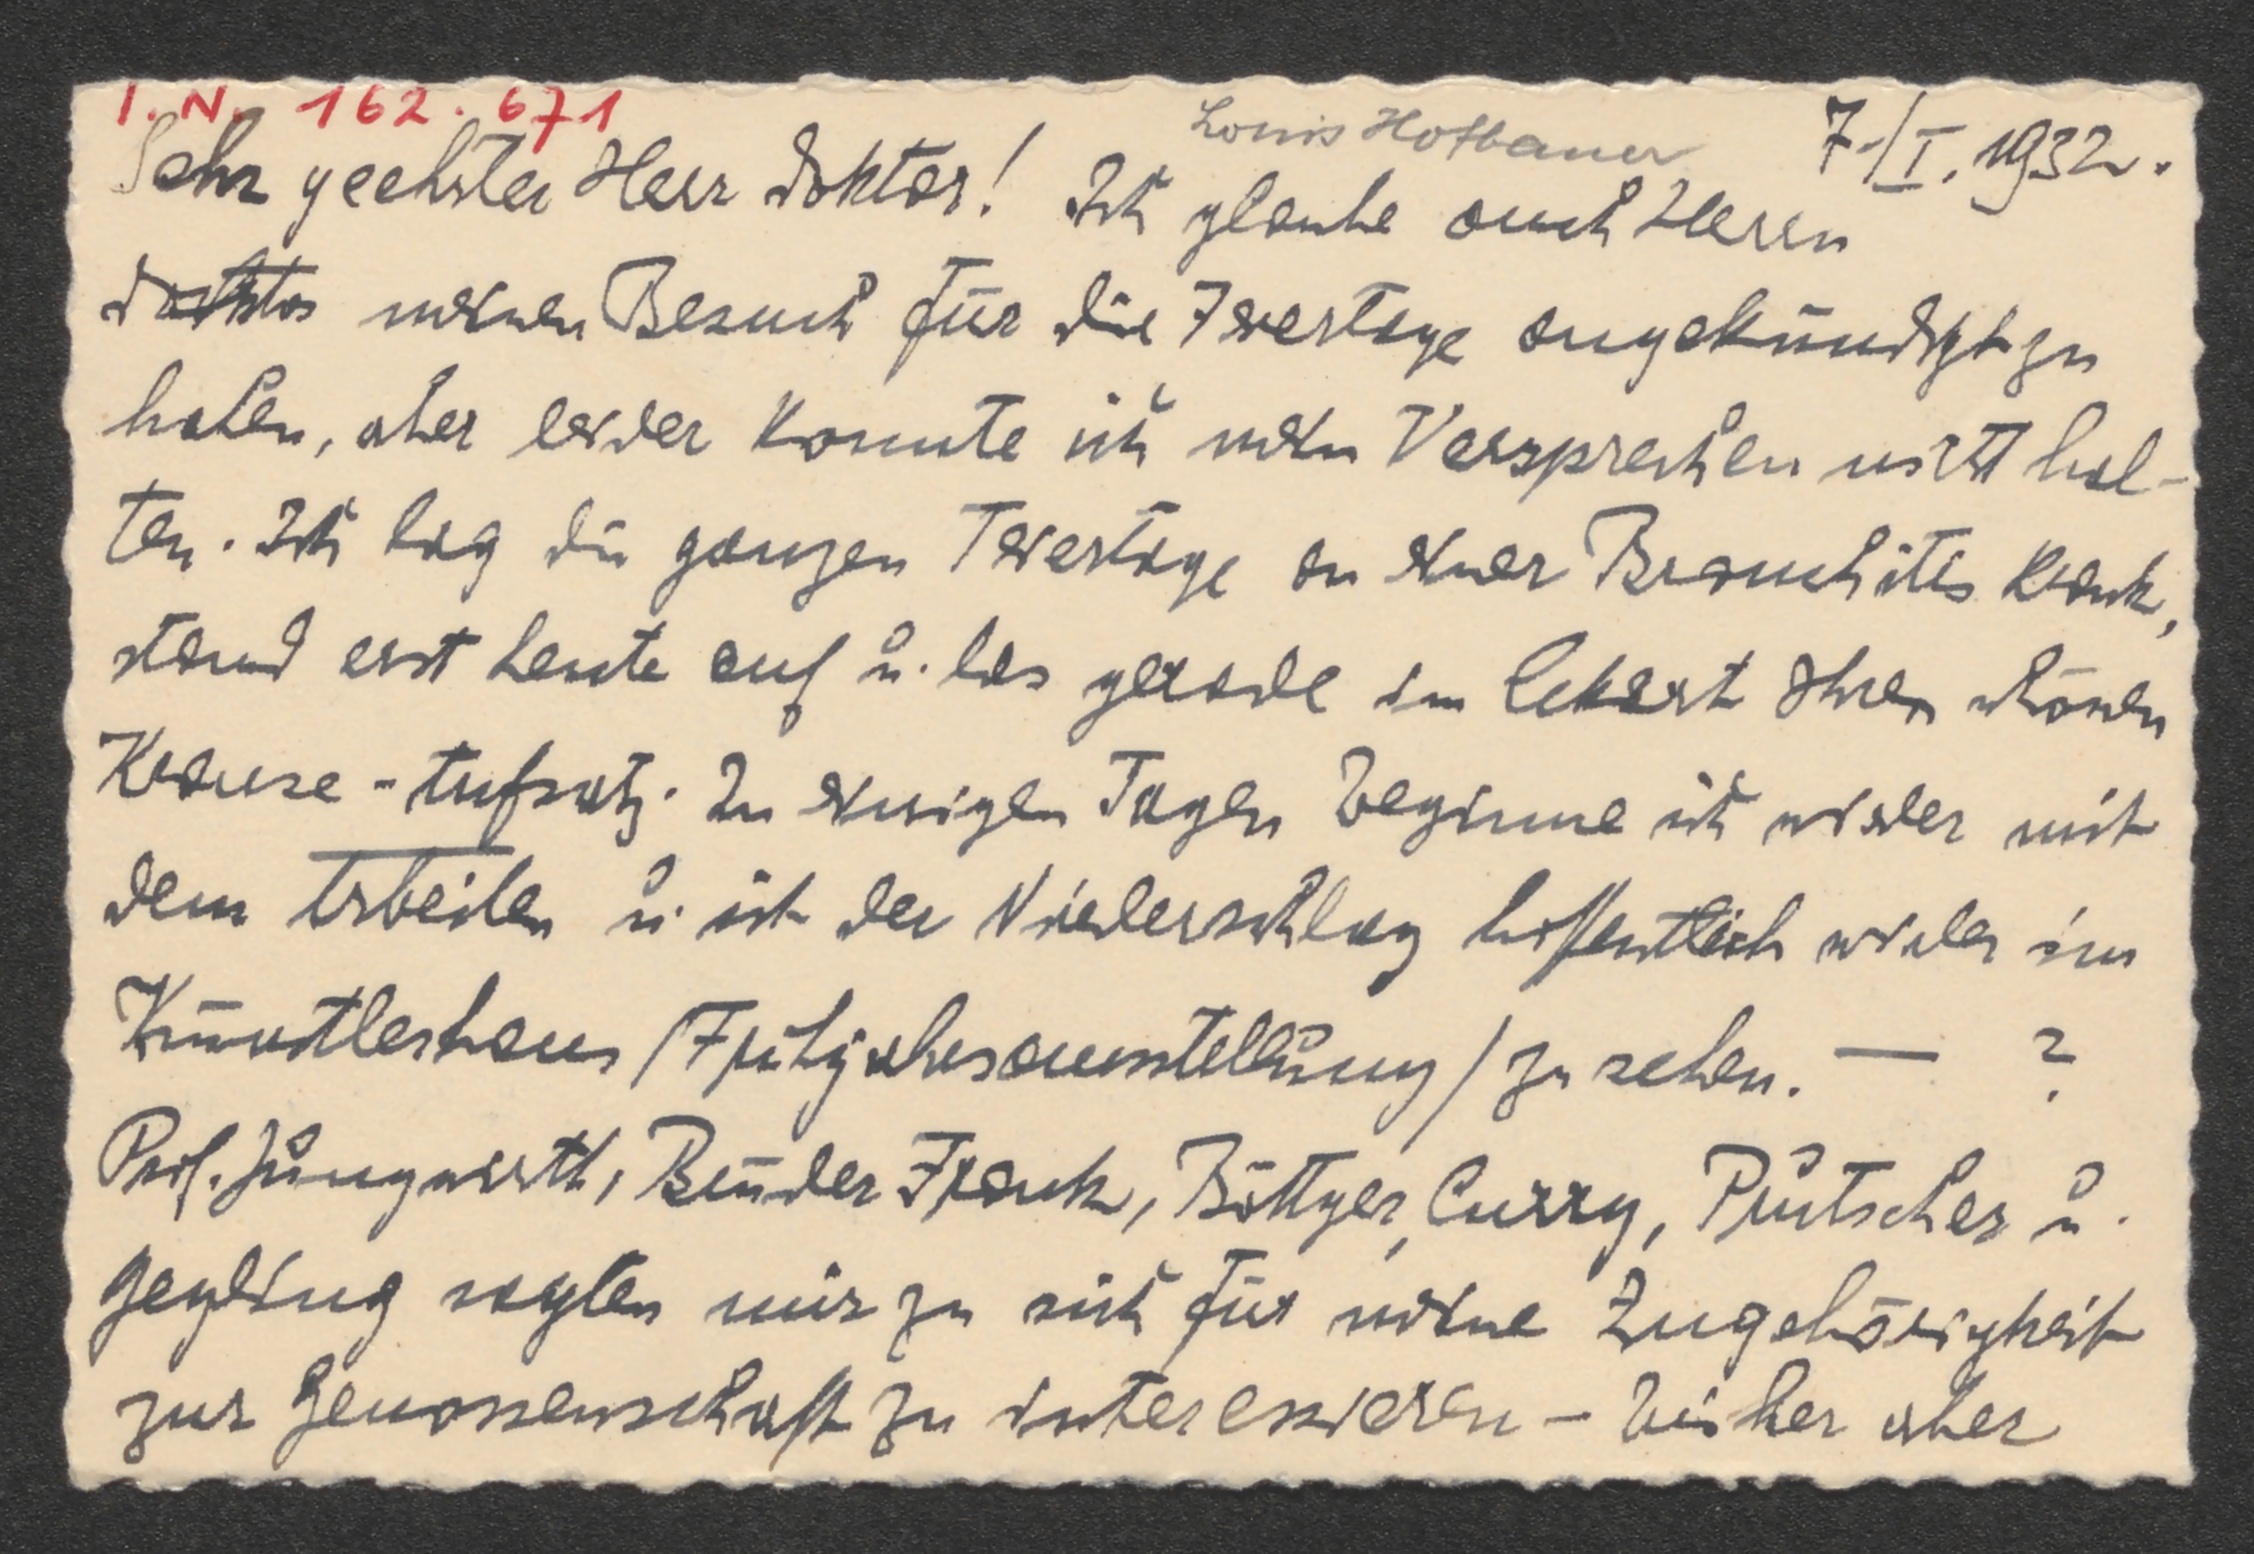 I. N. 162.671
Louis Hofbauer
7./I. 1932.
Sehr geehrter Herr Doktor! Ich glaube auch Herrn
Doktor meinen Besuch für die Feiertage angekündigt zu
haben, aber leider konnte ich mein Versprechen nicht hal-
ten. Ich lag die ganzen Feiertage an einer Bronchitis krank,
stand erst heute auf u. las gerade im Eckart Ihren schönen
Krause-Aufsatz. In einigen Tagen beginne ich wieder mit
dem Arbeiten u. ist der Niederschlag hoffentlich wieder im
Künstlerhaus /Frühjahrsausstellung/ zu sehen. — ?
Prof. Jungwirth, Bruder Frank, Böttger, Curry, Prutscher u.
Geyling sagten mir zu sich für meine Zugehörigkeit
zur Genossenschaft zu interessieren – bisher aber